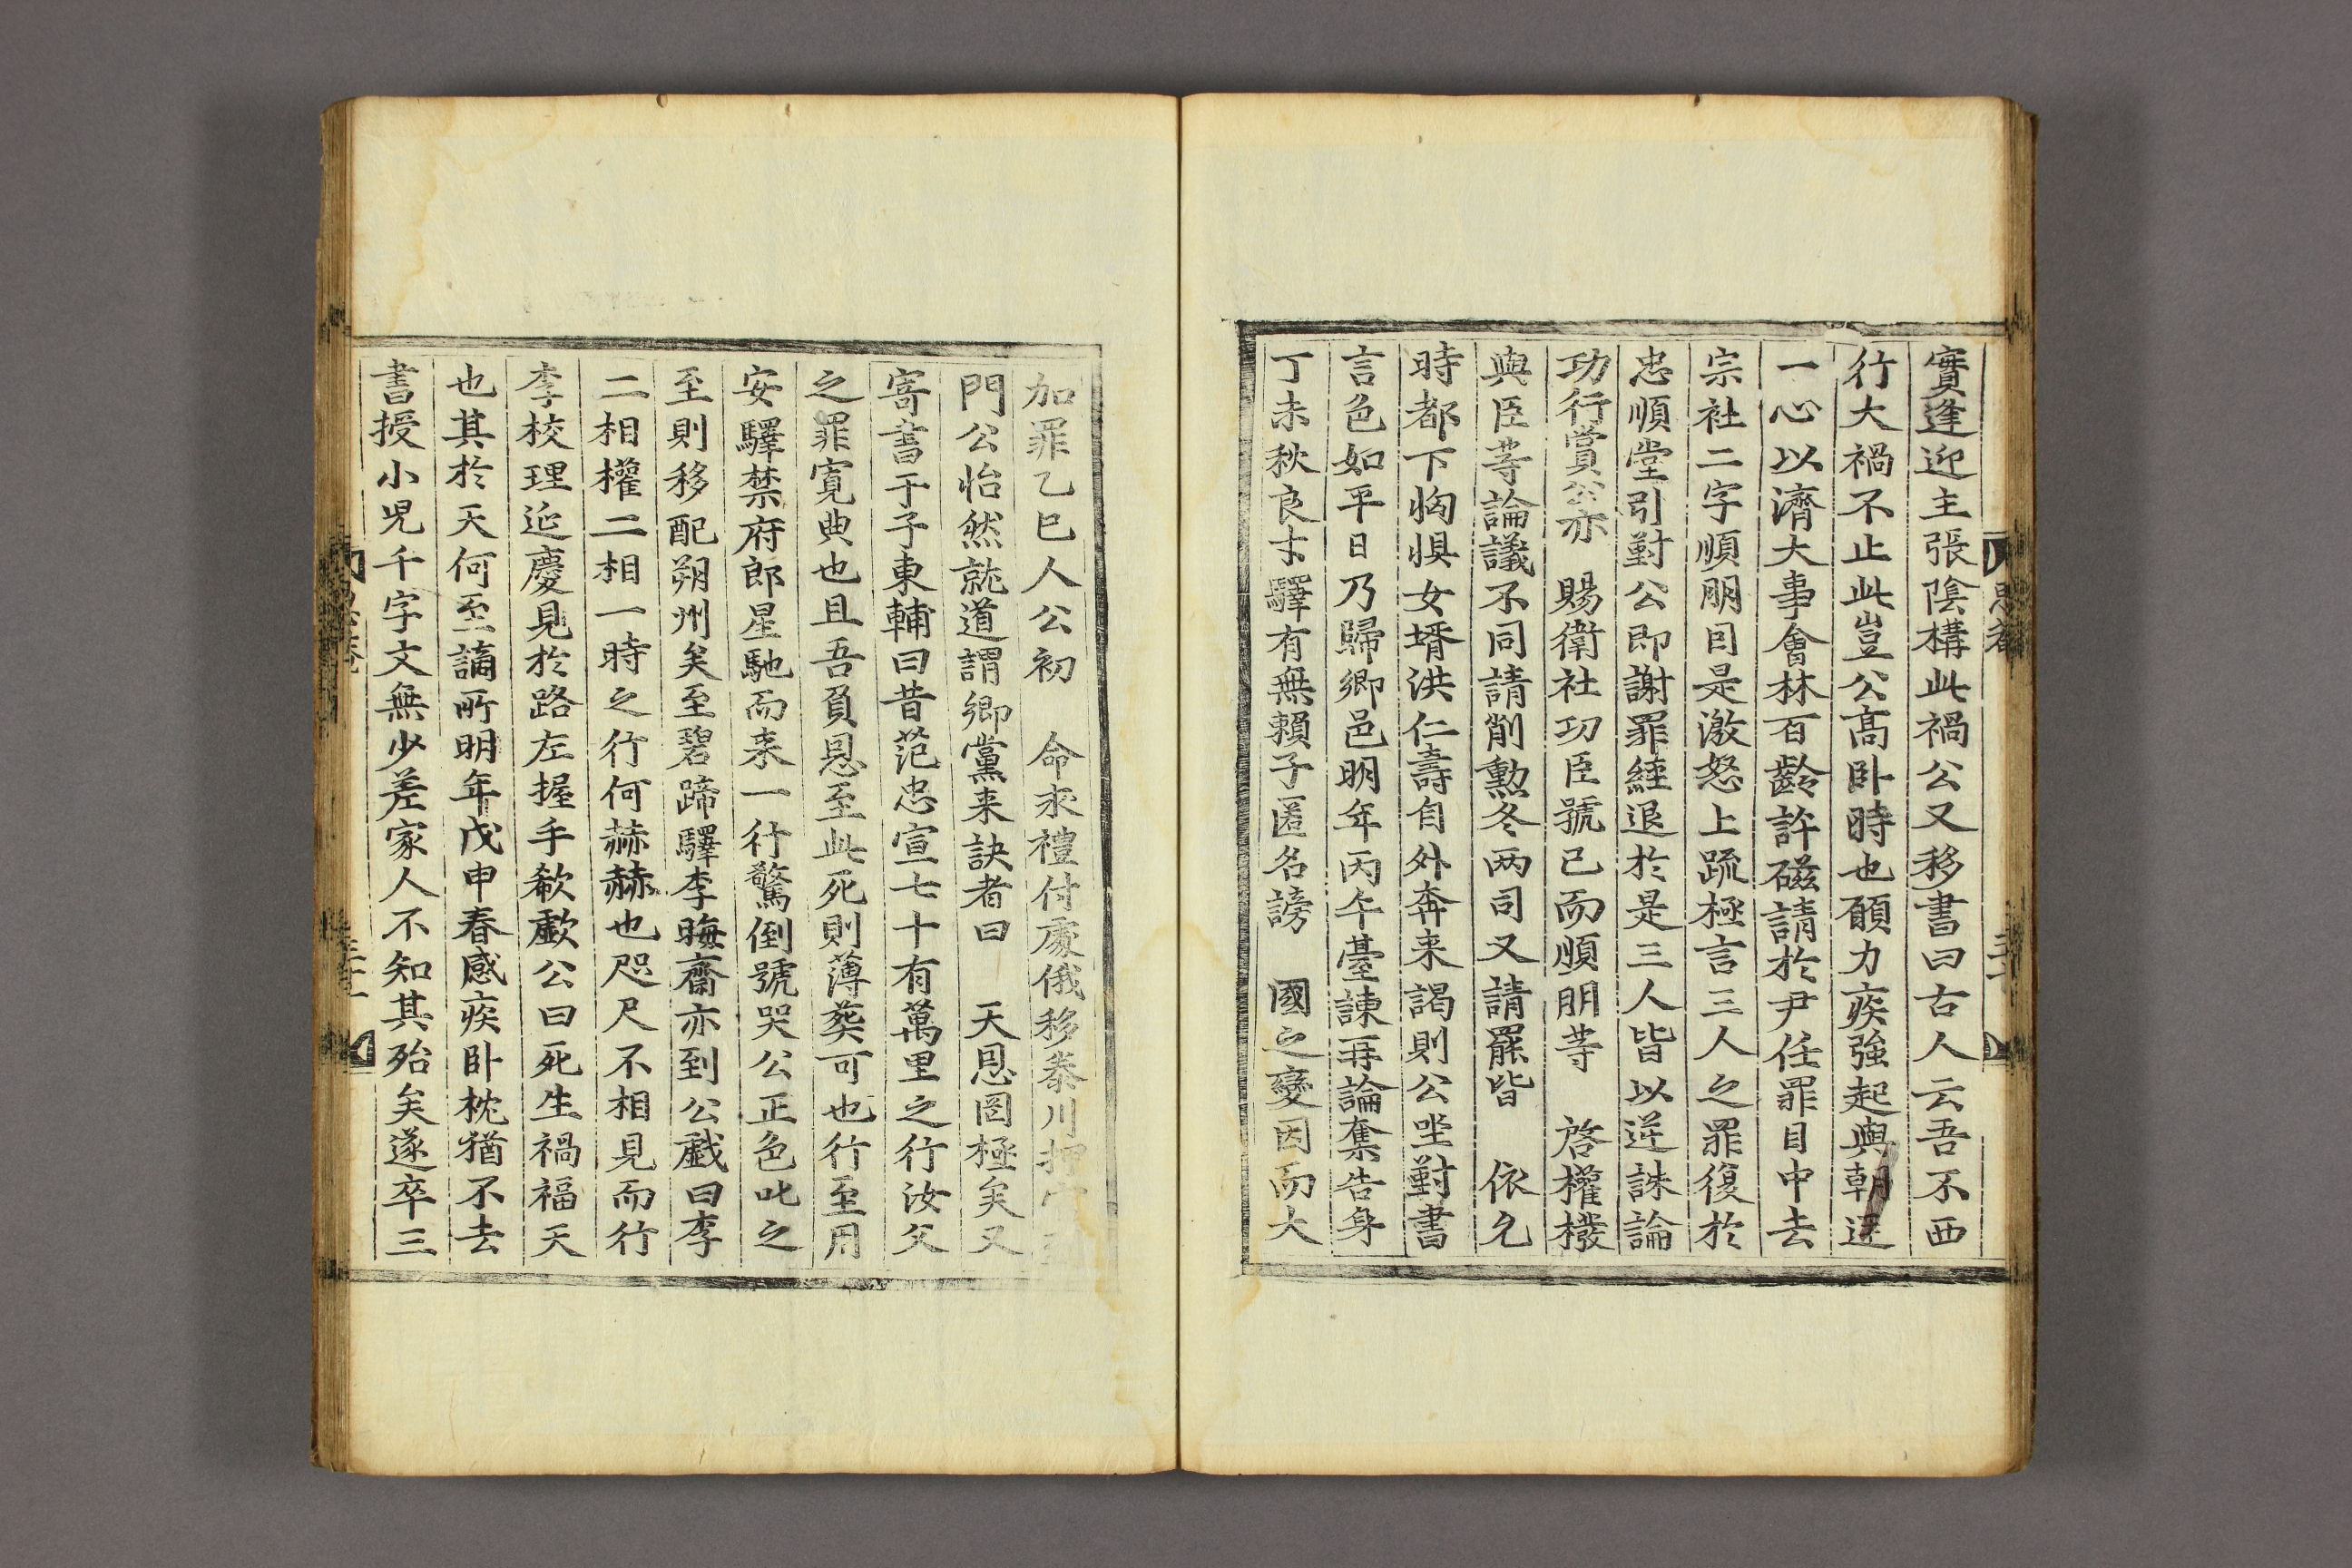 實逢迎主張陰構此禍公又移書曰古人云吾不西
行大禍不止此豈公高卧時也願力疾強起與朝廷
一心以濟大事會林百齡許磁請於尹任罪目中去
宗社二字順朋囙是激怒上疏極言三人之罪復於
忠順堂引對公即謝罪経退於是三人皆以逆誅論
功行賞公亦　賜衛社功臣號已而順朋等　啓權橃
與臣等論議不同請削勲冬両司又請罷皆　依允
時都下恟惧女壻洪仁壽自外奔来謁則公坐對書
言色如平日乃歸鄉邑明年丙午臺諫再論奪告身
丁未秋良才驛有無賴子匿名謗　國之變因而大
加罪乙巳人公初　命求禮付處俄移泰川押官
門公怡然就道謂鄉黨来訣者曰　天恩罔極矣又
寄書于子東輔曰昔范忠宣七十有萬里之行汝父
之罪寛典也且吾負恩至此死則薄葬可也行至用
安驛禁府郎星馳而来一行驚倒號哭公正色叱之
至則移配朔州矣至碧蹄驛李晦齋亦到公戱曰李
二相權二相一時之行何赫赫也咫尺不相見而行
李校理延慶見於路左握手欷歔公曰死生禍福天
也其於天何至謫所明年戊申春感疾卧枕猶不去
書授小児千字文無少差家人不知其殆矣遂卒三